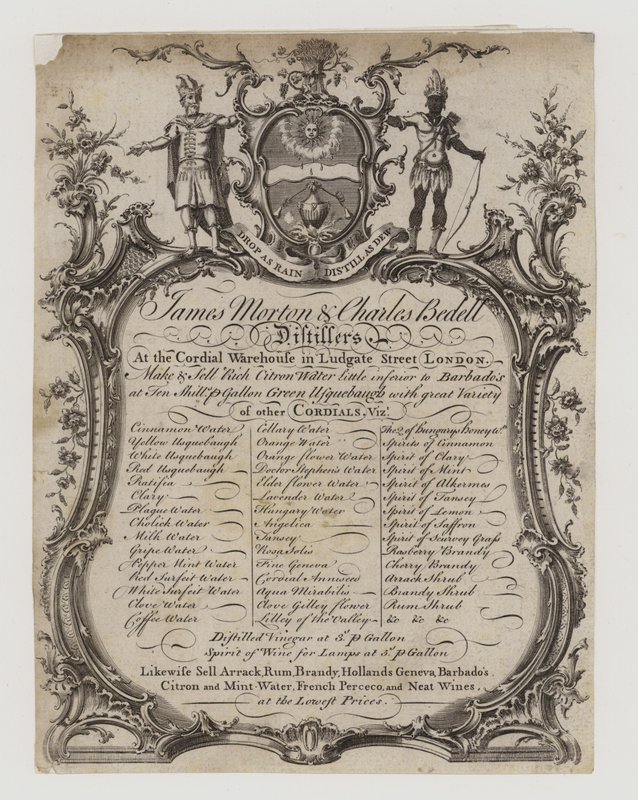 DROP AS RAIN DISTILL AS DEW
James Morton & Charles Bedell
Distillers
At the Cordial Warehouse in Ludgate Street LONDON.
Make & Sell Rich Citron Water little inferior to Barbado's
at Ten Shill.s ⅌ Gallon Green Usquebaugh with great Variety
of other CORDIALS, Viz.t
Cinnamon Water
Yellow Usquebaugh
White Usquebaugh
Red Usquebaugh
Ratifea
Clary
Plague Water
Cholick Water
Milk Water
Gripe Water
Pepper Mint Water
Red Surfeit Water
White Surfeit Water
Clove Water
Coffee Water
Cellary Water
Orange Water
Orange flower Water
Doctor Stephens Water
Elder flower Water
Lavender Water
Hungary Water
Angelica
Tansey
Rosa Solis
Fine Geneva
Cordial Anniseed
Aqua Mirabilis
Clove Gilley flower
Lilley of the Valley
The Q. of Hungarys Honey W.r
Spirits of Cinnamon
Spirit of Clary
Spirit of Mint
Spirit of Alkermes
Spirit of Tansey
Spirit of Lemon
Spirit of Saffron
Spirit of Scurvey Grass
Rasberry Brandy
Cherry Brandy
Arrack Shrub
Brandy Shrub
Rum Shrub
&c &c &c
Distilled Vinegar at 3.s ⅌ Gallon
Spirit of Wine for Lamps at 5.s ⅌ Gallon
Likewise Sell Arrack, Rum, Brandy, Hollands Geneva, Barbado's
Citron and Mint-Water, French Perceco, and Neat Wines,
at the Lowest Prices.